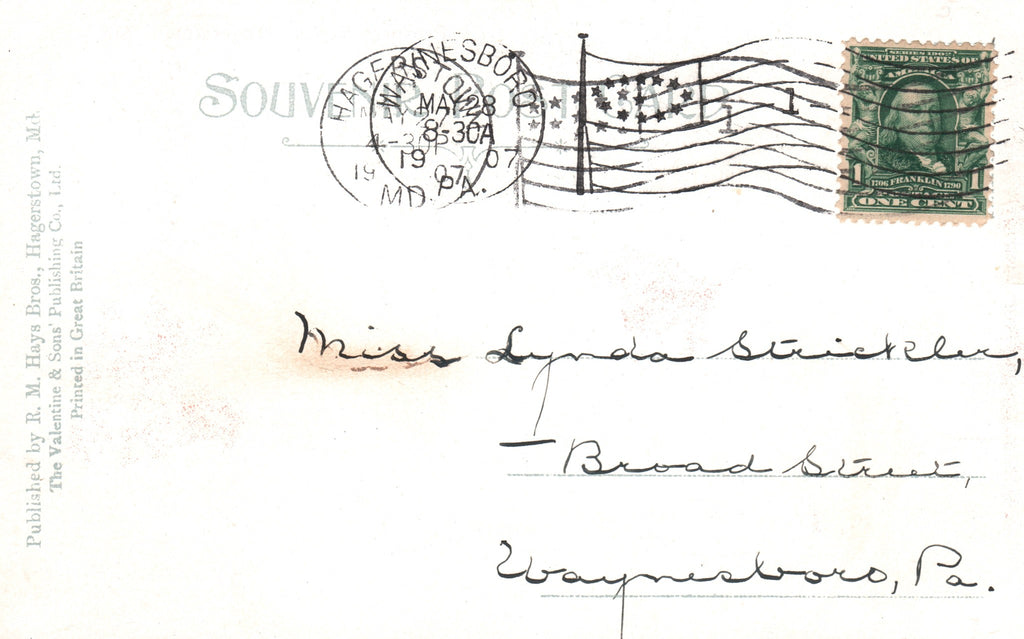 SOUVENIR POST CARD
HAGERSTOWN
WAYNESBORO
MAY 28
8-30A
4-30P
19 07
19 07
MD.
PA.
1
1
SERIES 1902
UNITED STATES OF
AMERICA
1 1
1706 FRANKLIN 1790
ONE CENT
Published by R. M. Hays Bros., Hagerstown, Md.
The Valentine & Sons' Publishing Co., Ltd.
Printed in Great Britain
Miss Lynda Strickler,
— Broad Street,
Waynesboro, Pa.